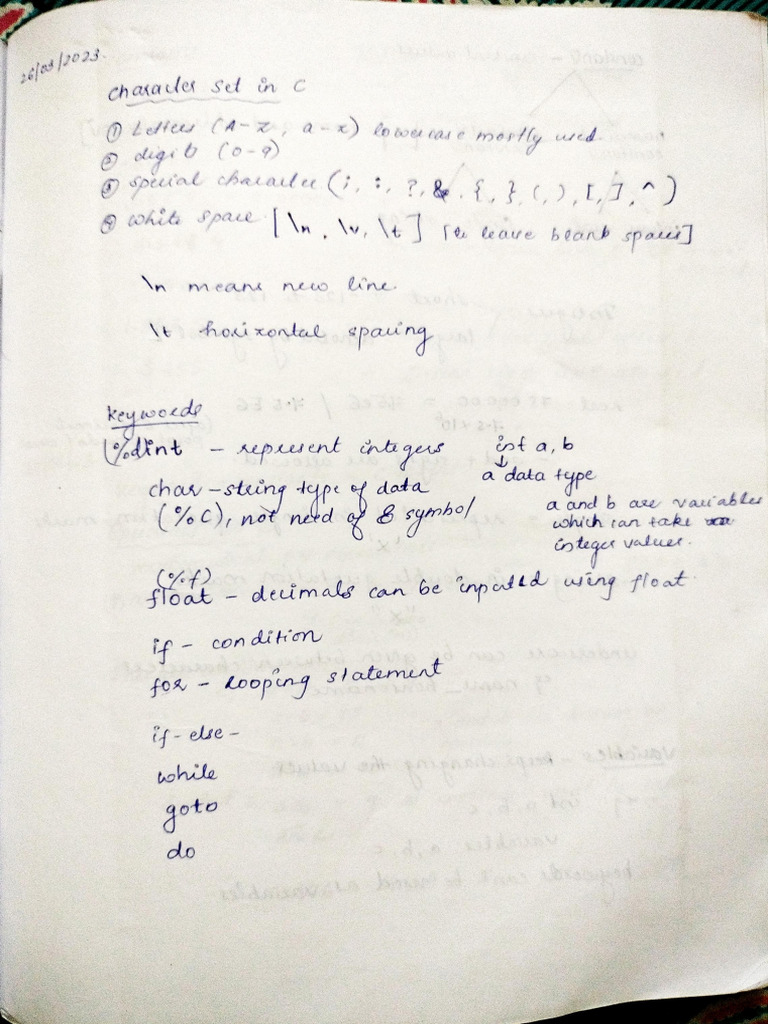 26/03/2023.
character set in C
① Letters (A-Z, a-z) lowercase mostly used.
② digits (0-9)
③ special character (;, :, ?, &, {, }, (, ), [, ], ^)
④ white space [\n, \v, \t] [to leave blank spaces]
\n means new line.
\t horizontal spacing
keywords
(%d int - represent integers int a, b
a data type
char - string type of data
a and b are variables
(%C), not need of & symbol
which can take
integer values.
(%f)
float - decimals can be inputed using float.
if - condition
for - looping statement
if-else-
while
goto
do